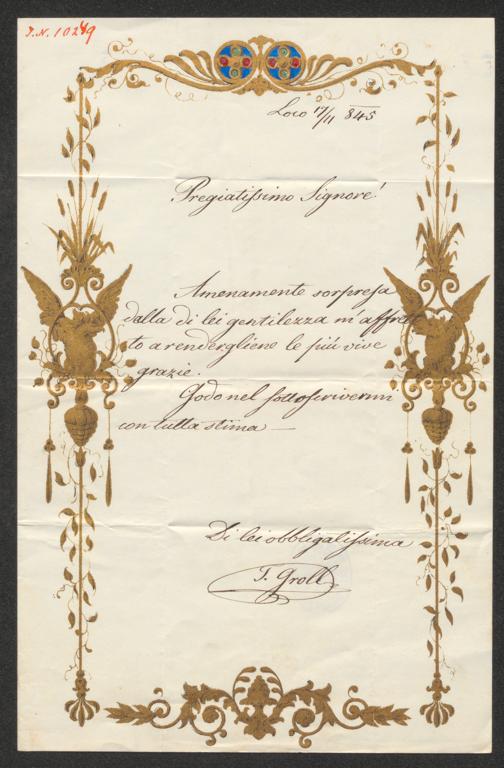 J.N. 10249
Loco 17/11 845
Pregiatissimo Signore!
Amenamente sorpresa
dalla di lei gentilezza m'affret
to a renderglie­ne le più vive
grazie.
Godo nel sottoscrivermi
con tutta stima —
Di lei obbligatissima
T. Groll